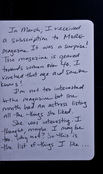 In March, I received
a subscription to More
magazine. It was a surprise!
This magazine is geared
towards women over 40. I
reached that age and some
hours!
I'm not too interested
in the magazine but one
month had an actress listing
all the things she liked.
She was interesting. I
thought, maybe I may be
the "she is?" So this is
the list of things I like...